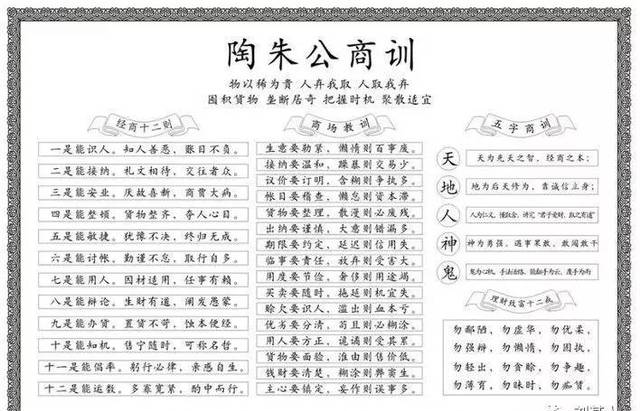 陶朱公商训
物以稀为贵 人弃我取 人取我弃
囤积货物 垄断居奇 把握时机 聚散适宜
经商十二则
一是能识人。知人善恶，账目不负。
二是能接纳。礼文相待，交往者众。
三是能安业。厌故喜新，商贾大病。
四是能整顿。货物整齐，夺人心目。
五是能敏捷。犹豫不决，终归无成。
六是能讨账。勤谨不怠，取行自多。
七是能用人。因材适用，任事有赖。
八是能辩论。生财有道，阐发愚蒙。
九是能办货。置货不苛，蚀本便经。
十是能知机。售宁随时，可称名哲。
十一是能倡率。躬行必律，亲感自生。
十二是能运数。多寡宽紧，酌中而行。
商场教训
生意要勤紧，懒惰则百事废。
接纳要温和，躁暴则交易少。
议价要订明，含糊则争执多。
帐目要稽查，懒怠则资本滞。
货物要整理，散漫则必废残。
出纳要谨慎，大意则错漏多。
期限要约定，延迟则信用失。
临事要责任，放弃则受害大。
用度要节俭，奢侈则用途竭。
买卖要随时，拖延则机宜失。
赊欠要识人，滥出则血本亏。
优劣要分清，苟且则必糊涂。
用人要方正，诡谲则受其累。
货物要面验，滥由则售价低。
钱财要清楚，糊涂则弊窦生。
主心要镇定，妄作则误事多。
五字商训
天
天为先天之智，经商之本；
地
地为后天修为，靠诚信立身；
人
人为仁义，懂取舍，讲究“君子爱财，取之有道”
神
神为勇强，遇事果敢，敢闯敢干
鬼
鬼为心机，手法活络，能翻手为云，覆手为雨
理财致富十二戒
勿鄙陋、勿虚华、勿优柔、
勿强辩、勿懒惰、勿固执、
勿轻出、勿贪赊、勿争趣、
勿薄育、勿昧时、勿痴货。